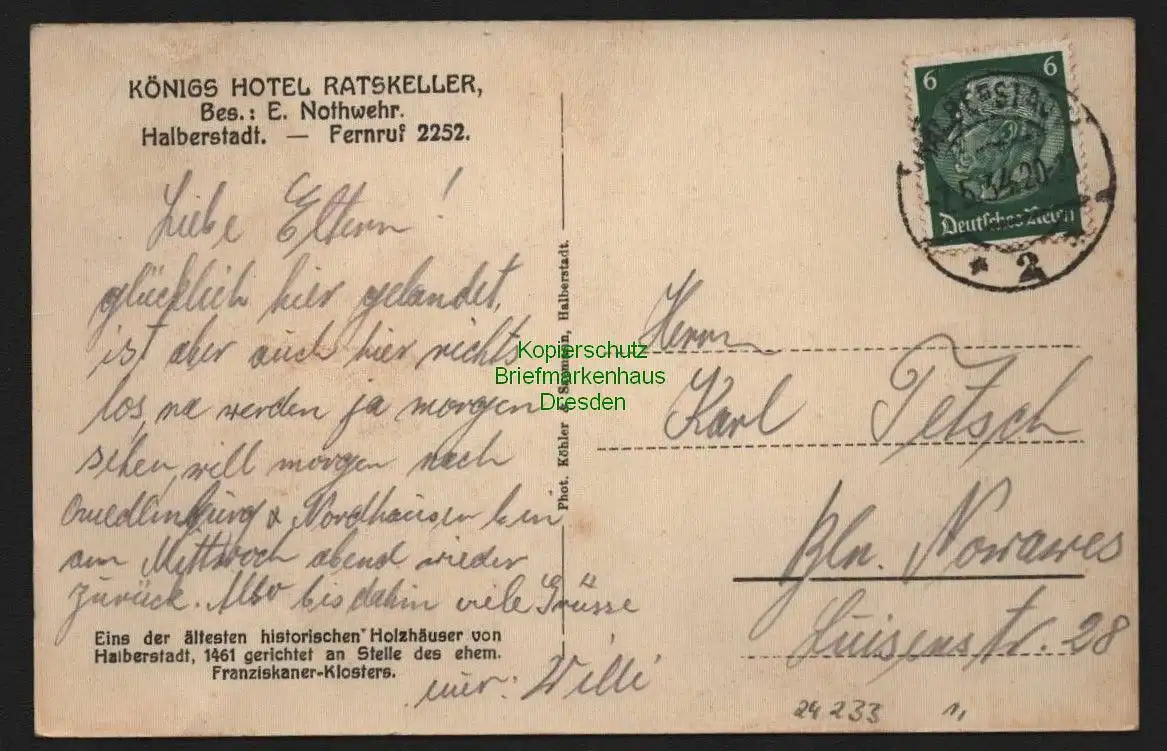 KÖNIGS HOTEL RATSKELLER,
Bes.: E. Nothwehr.
Halberstadt. — Fernruf 2252.
Liebe Eltern!
glücklich hier gelandet,
ist aber auch hier nichts
los, na werden ja morgen
sehen, will morgen nach
Quedlinburg & Nordhausen bin
am Mittwoch abend wieder
zurück. Also bis dahin viele Grüsse
euer: Willi
Eins der ältesten historischen Holzhäuser von
Halberstadt, 1461 gerichtet an Stelle des ehem.
Franziskaner-Klosters.
Phot. Köhler & Halberstadt.
Kopierschutz
Briefmarkenhaus
Dresden
6 6
Deutsches Reich
HALBERSTADT
7.5.34.20-
* 2
Herrn
Karl Tetsch
Bln. Nowawes
Luisenstr. 28
24233